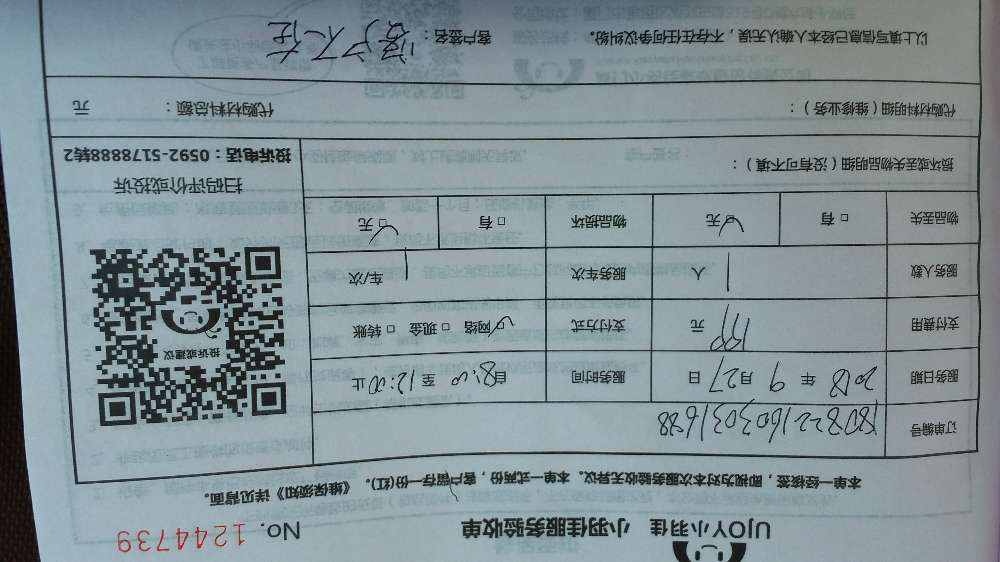 UJOY小羽佳 小羽佳服务验收单 No. 1244739
本单一经核签，即视为对本次服务验收无异议。本单一式两份，客户留存一份(红)。《维保须知》详见背面。
订单编号 1808221603031688
服务日期 2018 年 9 月 27 日 服务时间 自8:00 至 12:00止
支付费用 元 支付方式 ☑网络 □现金 □转账
服务人数 1 人 服务车次 1 车/次
物品丢失 □有 ☑无 物品损坏 □有 ☑无
损坏或丢失物品明细（没有可不填）：
投诉或建议
扫码评价或投诉
投诉电话：0592-5178888转2
代购材料明细（维修业务）： 代购材料总额： 元
以上填写信息已经本人确认无误，不存在任何争议纠纷。 客户签名：